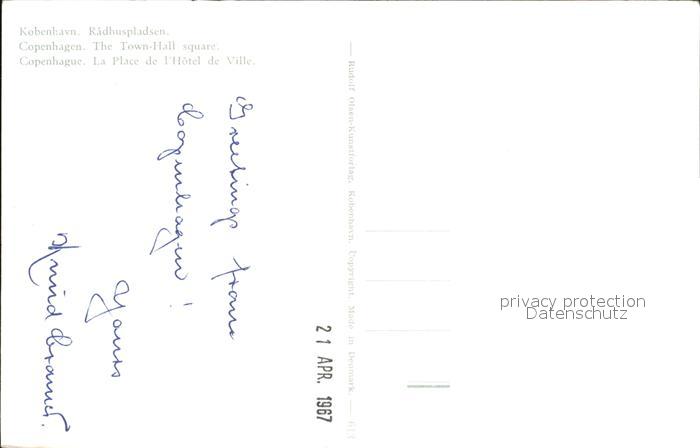 København. Rådhuspladsen.
Copenhagen. The Town-Hall square.
Copenhague. La Place de l'Hôtel de Ville.
Greetings from
Copenhagen!
Yours
Rudolf Olsen-Kunstforlag, København. Copyright. Made in Denmark. — 613
21 APR. 1967
privacy protection
Datenschutz